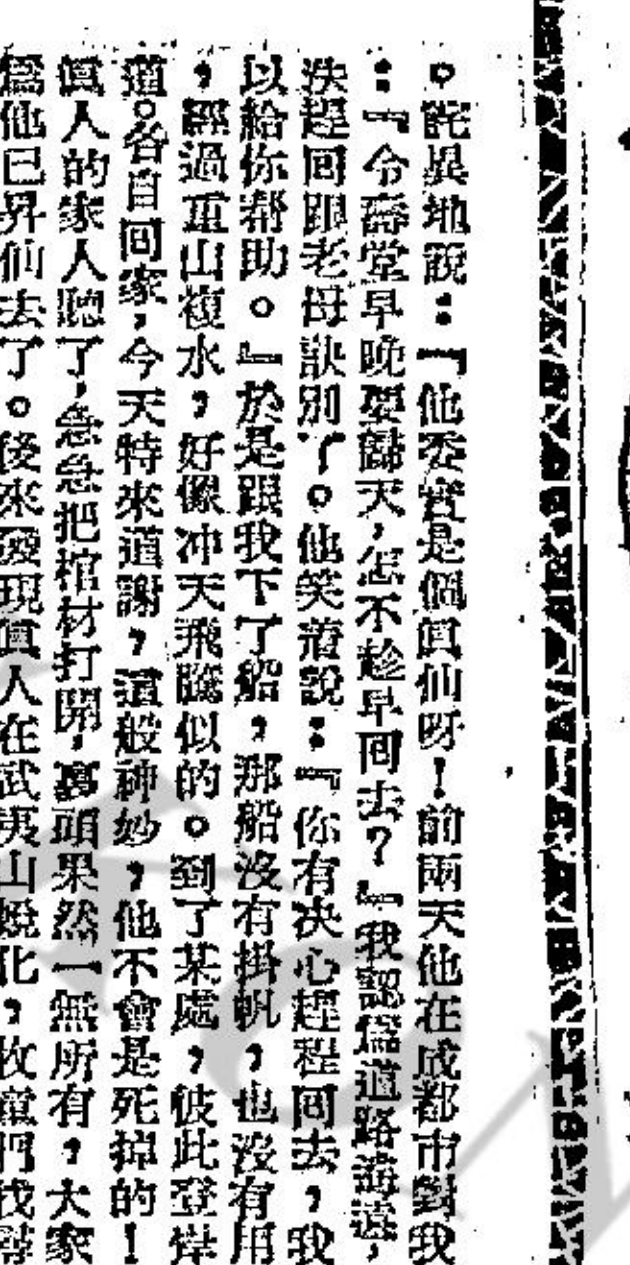 。詫異地說：「他委實是個眞仙呀！前兩天他在成都市對我
：『令壽堂早晚要歸天，怎不趁早回去？』我認爲道路海遠，
洪趕回跟老母訣別了。他笑着說：『你有決心趕程回去，我
以給你幫助。』於是跟我下了船，那船沒有掛帆，也沒有用
，經過重山複水，好像冲天飛騰似的。到了某處，彼此登岸
道。各自回家，今天特來道謝，這般神妙，他不會是死掉的！
眞人的家人聽了，急急把棺材打開，裏頭果然一無所有，大家
爲他已昇仙去了。後來發現眞人在武夷山蛻化，牧童們伐